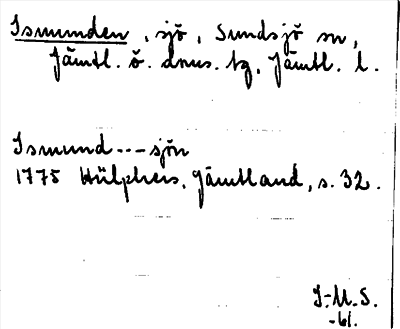 Ismunden, sjö, Sundsjö sn,
Jämtl. ö. dms. tg, Jämtl. l.
Ismund---sjön
1775 Hülphers, Jämtland, s. 32.
I-M.S.
-61.